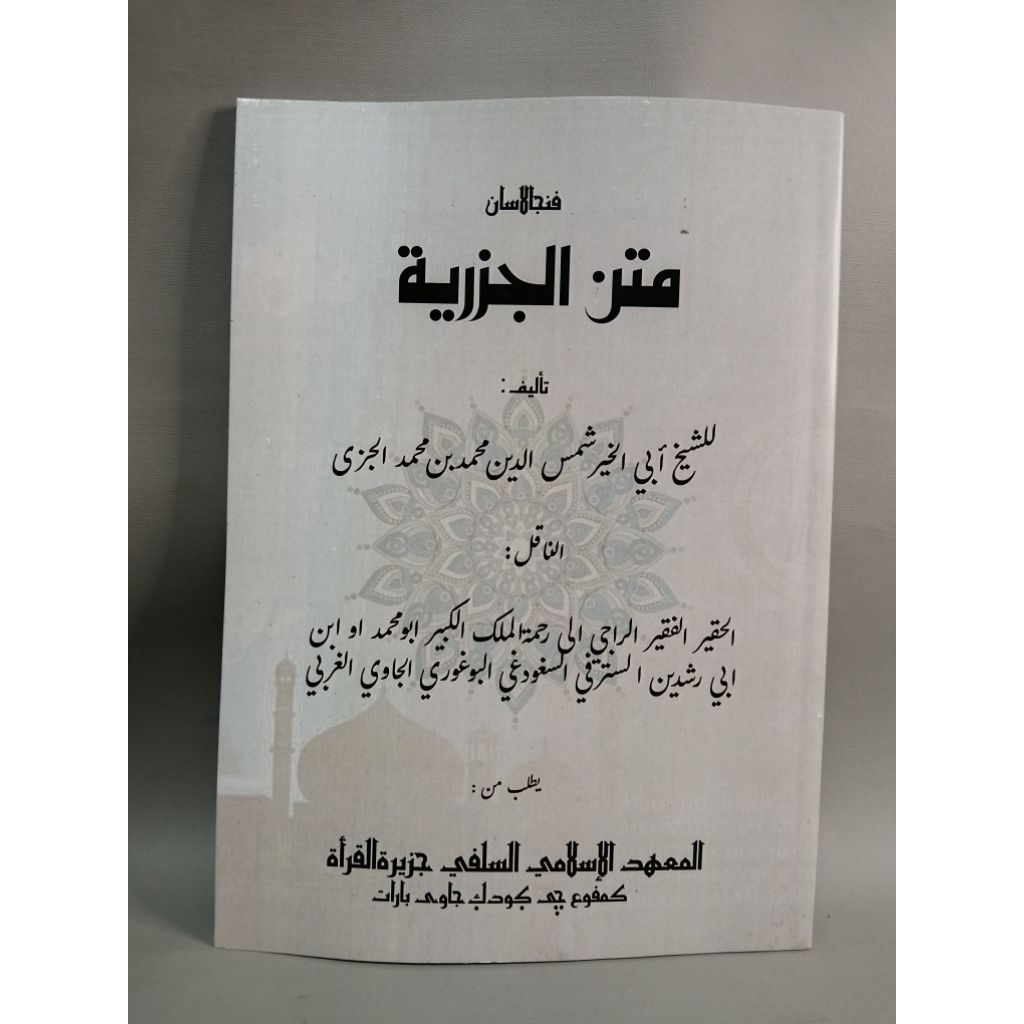 فنجالاسان
متن الجزرية
تأليف:
للشيخ أبي الخير شمس الدين محمد بن محمد الجزى
الناقل:
الحقير الفقير الراجي الى رحمة الملك الكبير ابو محمد او ابن
ابي رشدين السترفي السغودغي البوغوري الجاوي الغربي
يطلب من:
المعهد الإسلامي السلفي جزيرة القرأة
كمفوع چى بودك جاوى بارات